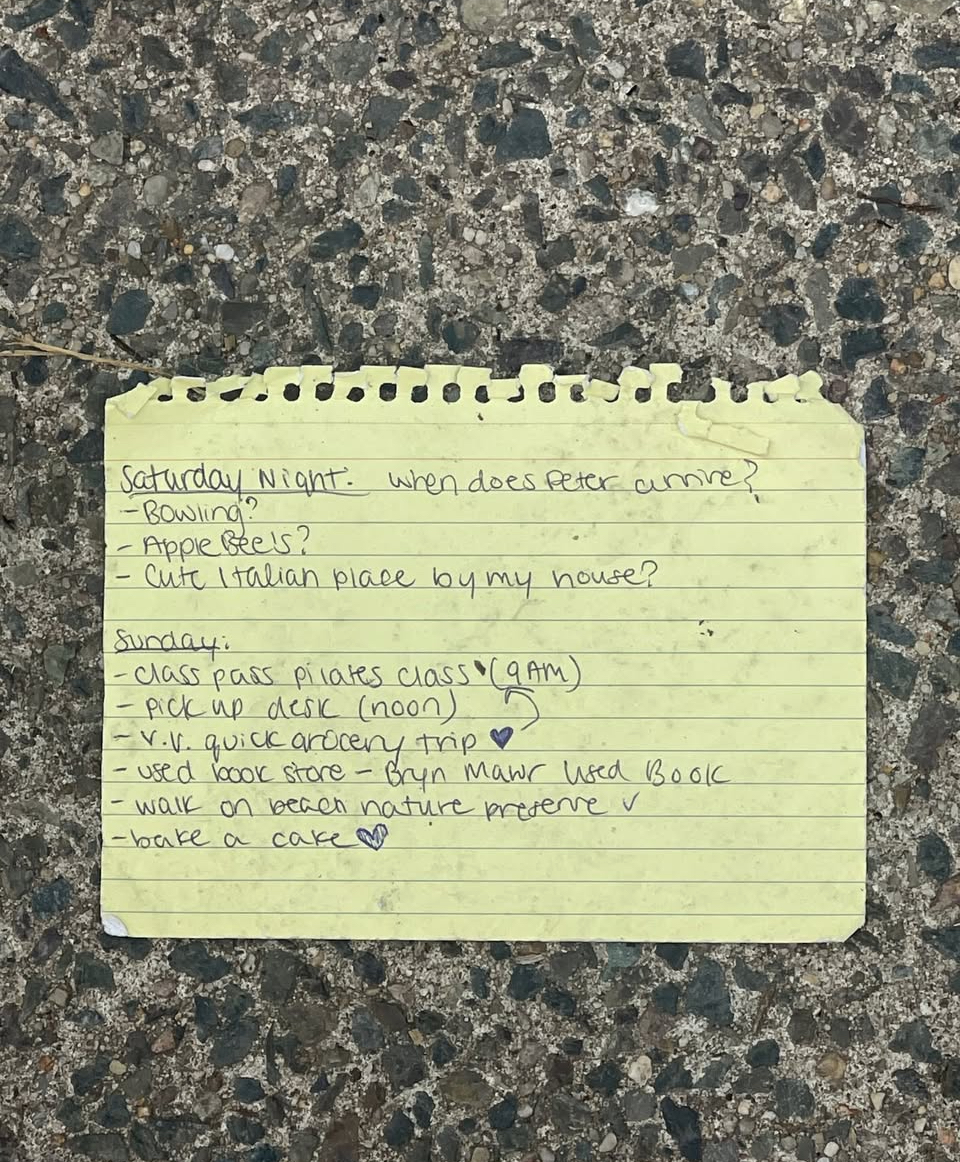 Saturday Night: when does Peter arrive?
- Bowling?
- AppleBee's?
- Cute Italian place by my house?
Sunday:
- class pass pilates class (9AM)
- pick up desk (noon)
- v.v. quick grocery trip ♥
- used book store - Bryn Mawr Used Book
- walk on beach nature preserve ✓
- bake a cake ♥